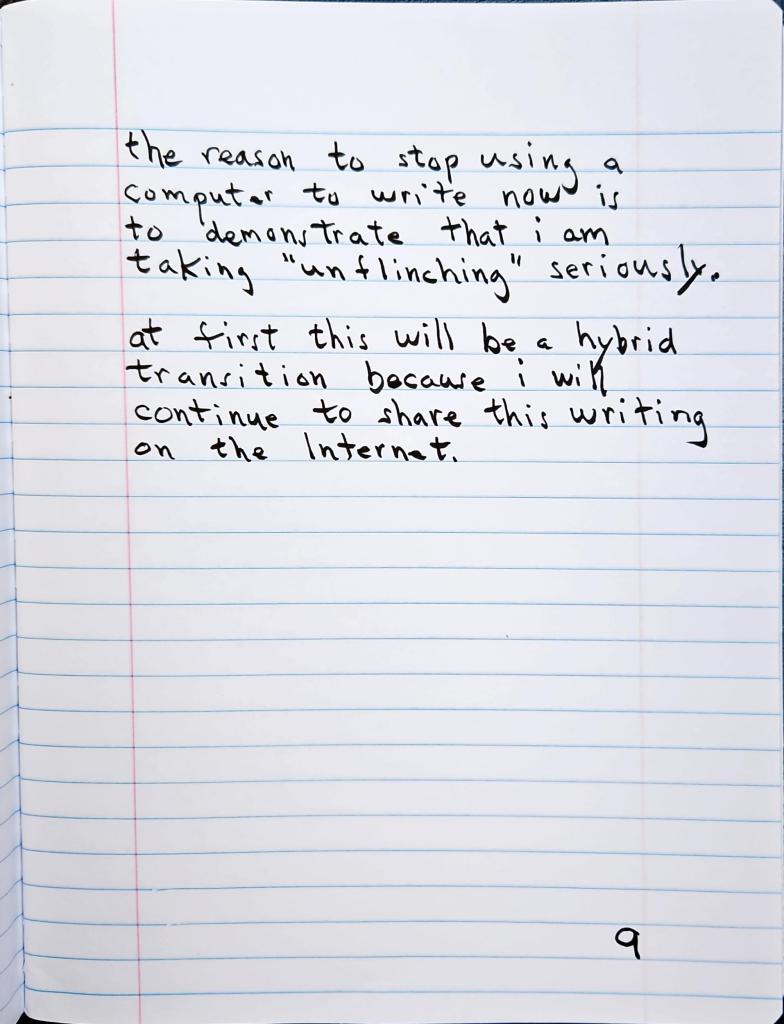 the reason to stop using a
computer to write now is
to demonstrate that i am
taking "unflinching" seriously.
at first this will be a hybrid
transition because i will
continue to share this writing
on the Internet.
9